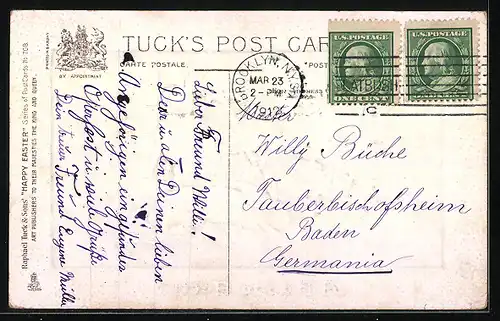 TUCK'S POST CARD
CARTE POSTALE.
BY APPOINTMENT
Raphael Tuck & Sons' "HAPPY EASTER" Series of Post Cards No 708.
ART PUBLISHERS TO THEIR MAJESTIES THE KING AND QUEEN.
Lieber Freund Willi!
Dir u. allen Deinen lieben
Angehörigen ein gesundes
Osterfest u. viele Grüße
Dein treuer Freund Eugene Müller
BROOKLYN, N.Y.
MAR 23
2-PM
1912
U.S. POSTAGE
ONE CENT
U.S. POSTAGE
Willy Büche
Tauberbischofsheim
Baden
Germania